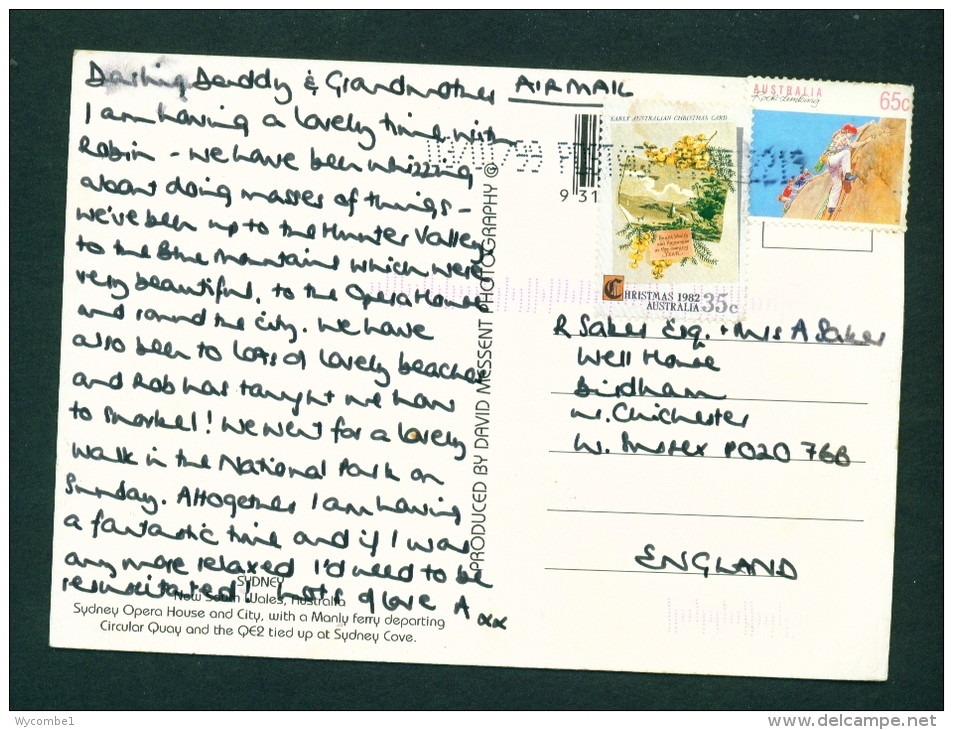 Darling Daddy & Grandmother AIRMAIL
I am having a lovely time with
Robin - we have been whizzing
about doing masses of things -
we've been up to the Hunter Valley,
to the Blue Mountains which were
very beautiful, to the Opera House
and round the city. We have
also been to lots of lovely beaches
and Rob has taught me how
to snorkel! We went for a lovely
walk in the National Park on
Sunday. Altogether I am having
a fantastic time and if I was
any more relaxed I'd need to be
resuscitated! Lots of love A xx
SYDNEY
New South Wales, Australia
Sydney Opera House and City, with a Manly ferry departing
Circular Quay and the QE2 tied up at Sydney Cove.
PRODUCED BY DAVID MESSENT PHOTOGRAPHY ©
9 31
EARLY AUSTRALIAN CHRISTMAS CARD
CHRISTMAS 1982
AUSTRALIA 35c
AUSTRALIA 65c
Rock climbing
R Saker Esq. + Mrs A Saker
Well House
Birdham
nr. Chichester
W. Sussex PO20 7GG
ENGLAND
Wycombe1
delcampe.net